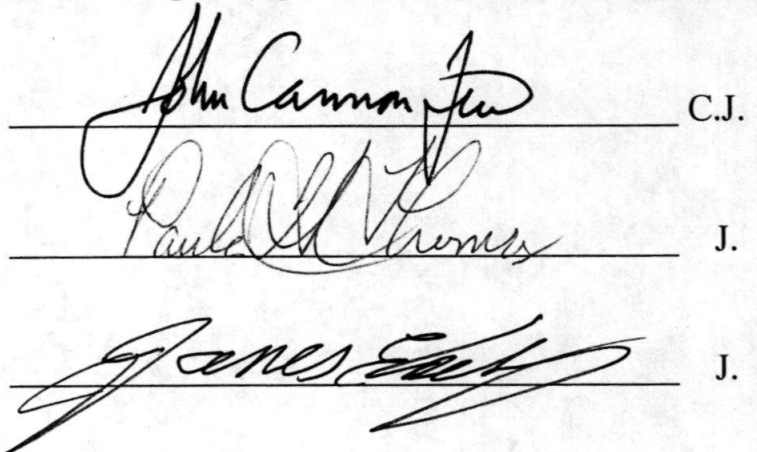 John Cannon Few C.J.
Paula H. Thomas J.
James J.